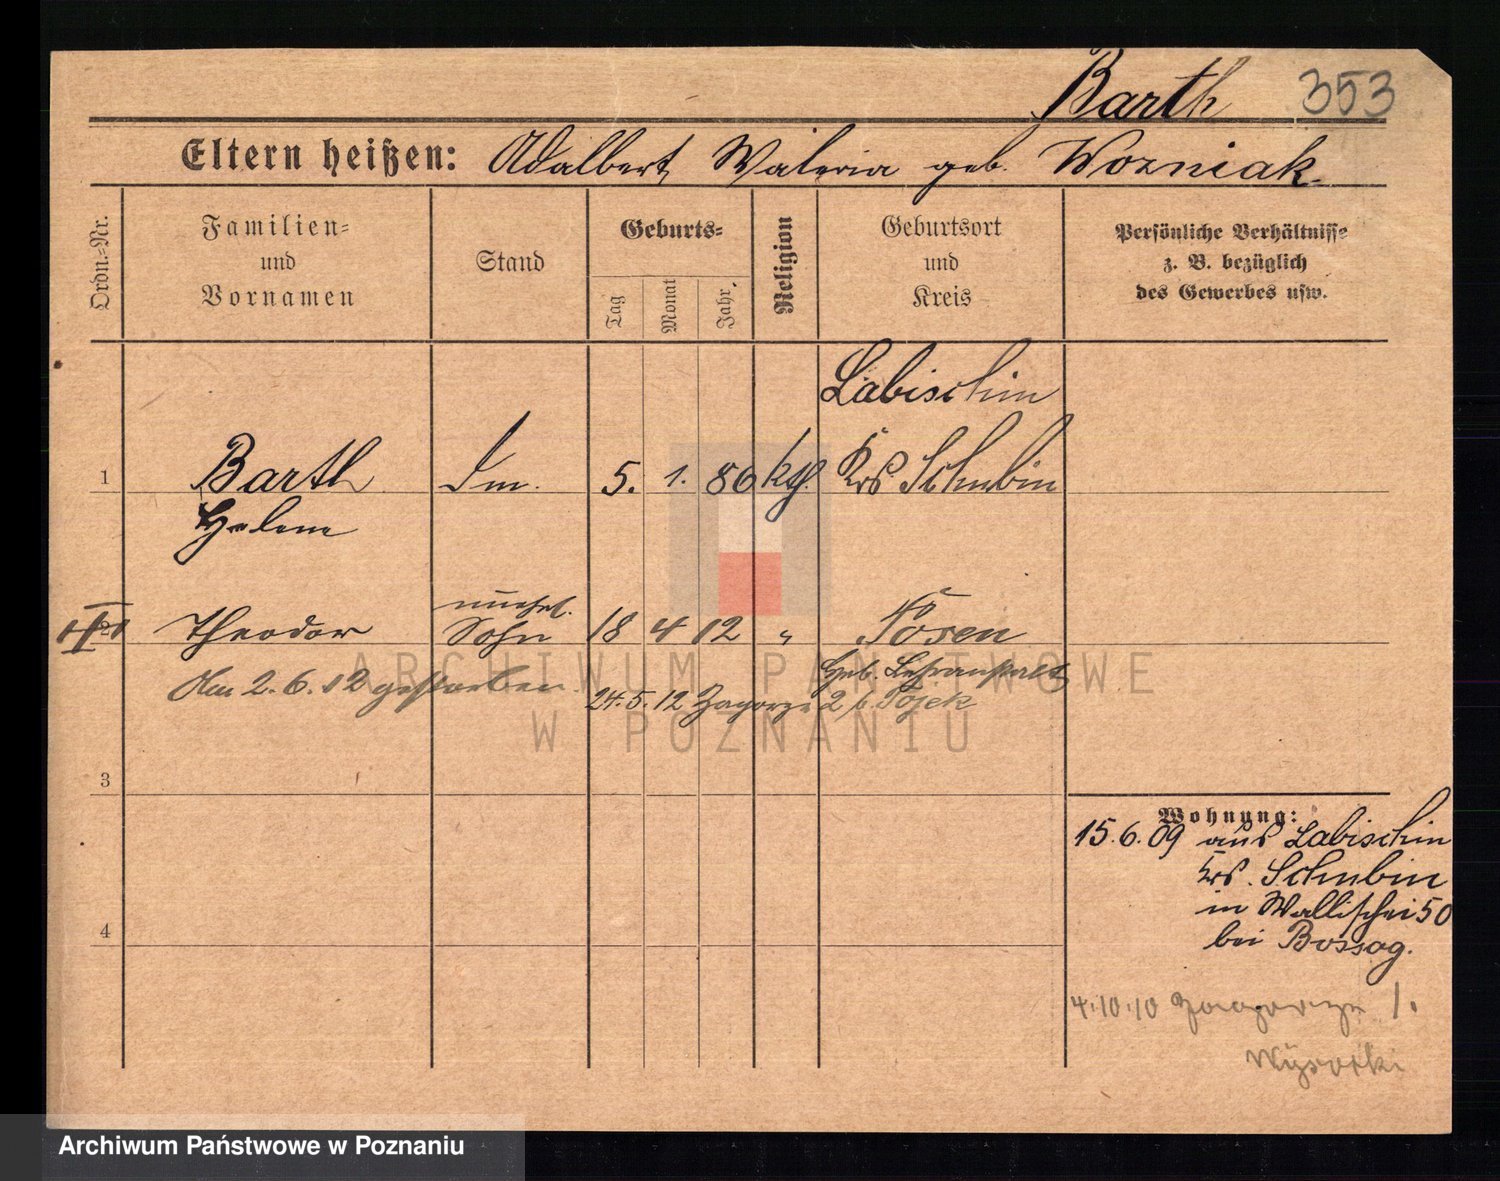 Barth 353
Eltern heißen: Adalbert, Waleria geb. Wozniak.
Ordn.-Nr.
Familien-
und
Vornamen
Stand
Geburts-
Tag
Monat
Jahr.
Religion
Geburtsort
und
Kreis
Persönliche Verhältnisse
z. B. bezüglich
des Gewerbes usw.
Labischin
1 Barth 5. 1. 86 kth. Krs Schubin
Helene
unehel.
2 Theodor Sohn 18 4 12 " Posen
Geb. Lehranstalt
Am 2.6.12 gestorben.
24.5.12 Zagorze 2 b.
3
Wohnung:
15.6.09 aus Labischin
Krs. Schubin
in Wallischei 50
4
bei Bossag.
4.10.10 Zagorze 1.
Wysocki
ARCHIWUM PAŃSTWOWE
W POZNANIU
Archiwum Państwowe w Poznaniu